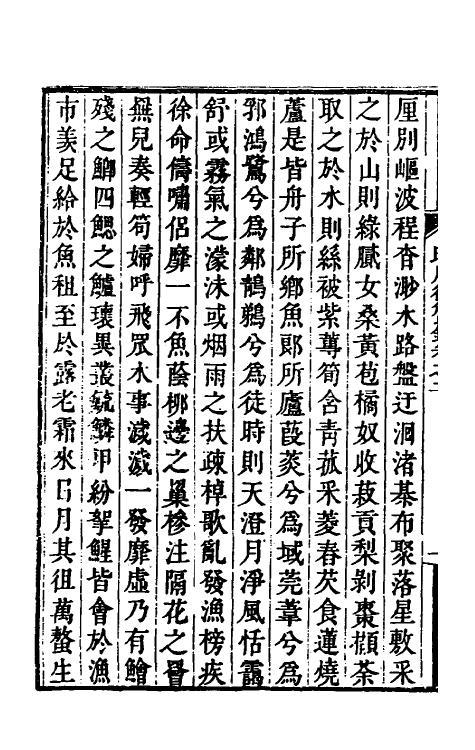 厘別嶇波程杳渺水路盤迂洄渚棊布聚落星敷采
之於山則綠膩女桑黃苞橘奴收菽貢梨剝棗擷茶
取之於水則絲被紫蓴筍含青菰采菱春芡食蓮燒
蘆是皆舟子所鄉魚郎所廬葭菼兮爲域莞葦兮爲
郛鴻鷺兮爲鄰鶄鶂兮爲徒時則天澄月淨風恬靄
舒或霧氣之濛沫或烟雨之扶疎棹歌亂發漁榜疾
徐命儔嘯侶靡一不魚蔭柳邊之巢槮注隔花之罾
無兒奏輕笱婦呼飛罛水事濊濊一發靡虛乃有鱠
殘之鯽四鰓之鱸瓌異叢毓鱗甲紛挐鯹皆會於漁
市羨足給於魚租至於露老霜來月其徂萬螯生